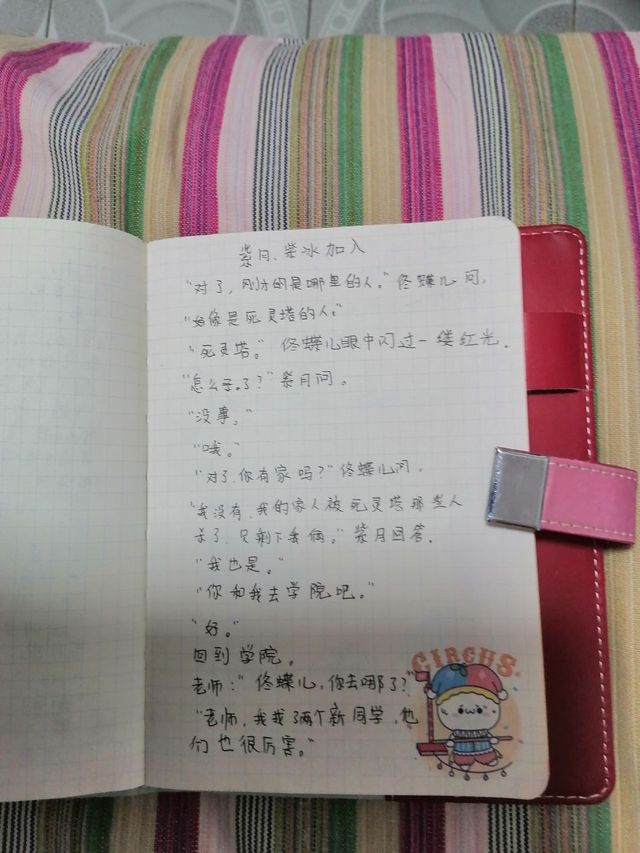 紫月、紫冰加入
"对了，刚才的是哪里的人。"佟蝶儿问，
"好像是死灵塔的人。"
"死灵塔。"佟蝶儿眼中闪过一缕红光．
"怎么了？"紫月问。
"没事。"
"哦。"
"对了，你有家吗？"佟蝶儿问，
"我没有，我的家人被死灵塔那些人
杀了，只剩下我俩。"紫月回答．
"我也是。"
"你和我去学院吧。"
"好。"
回到学院。
老师："佟蝶儿，你去哪了？"
"老师，我找了两个新同学，他
们也很厉害。"
CIRCUS.